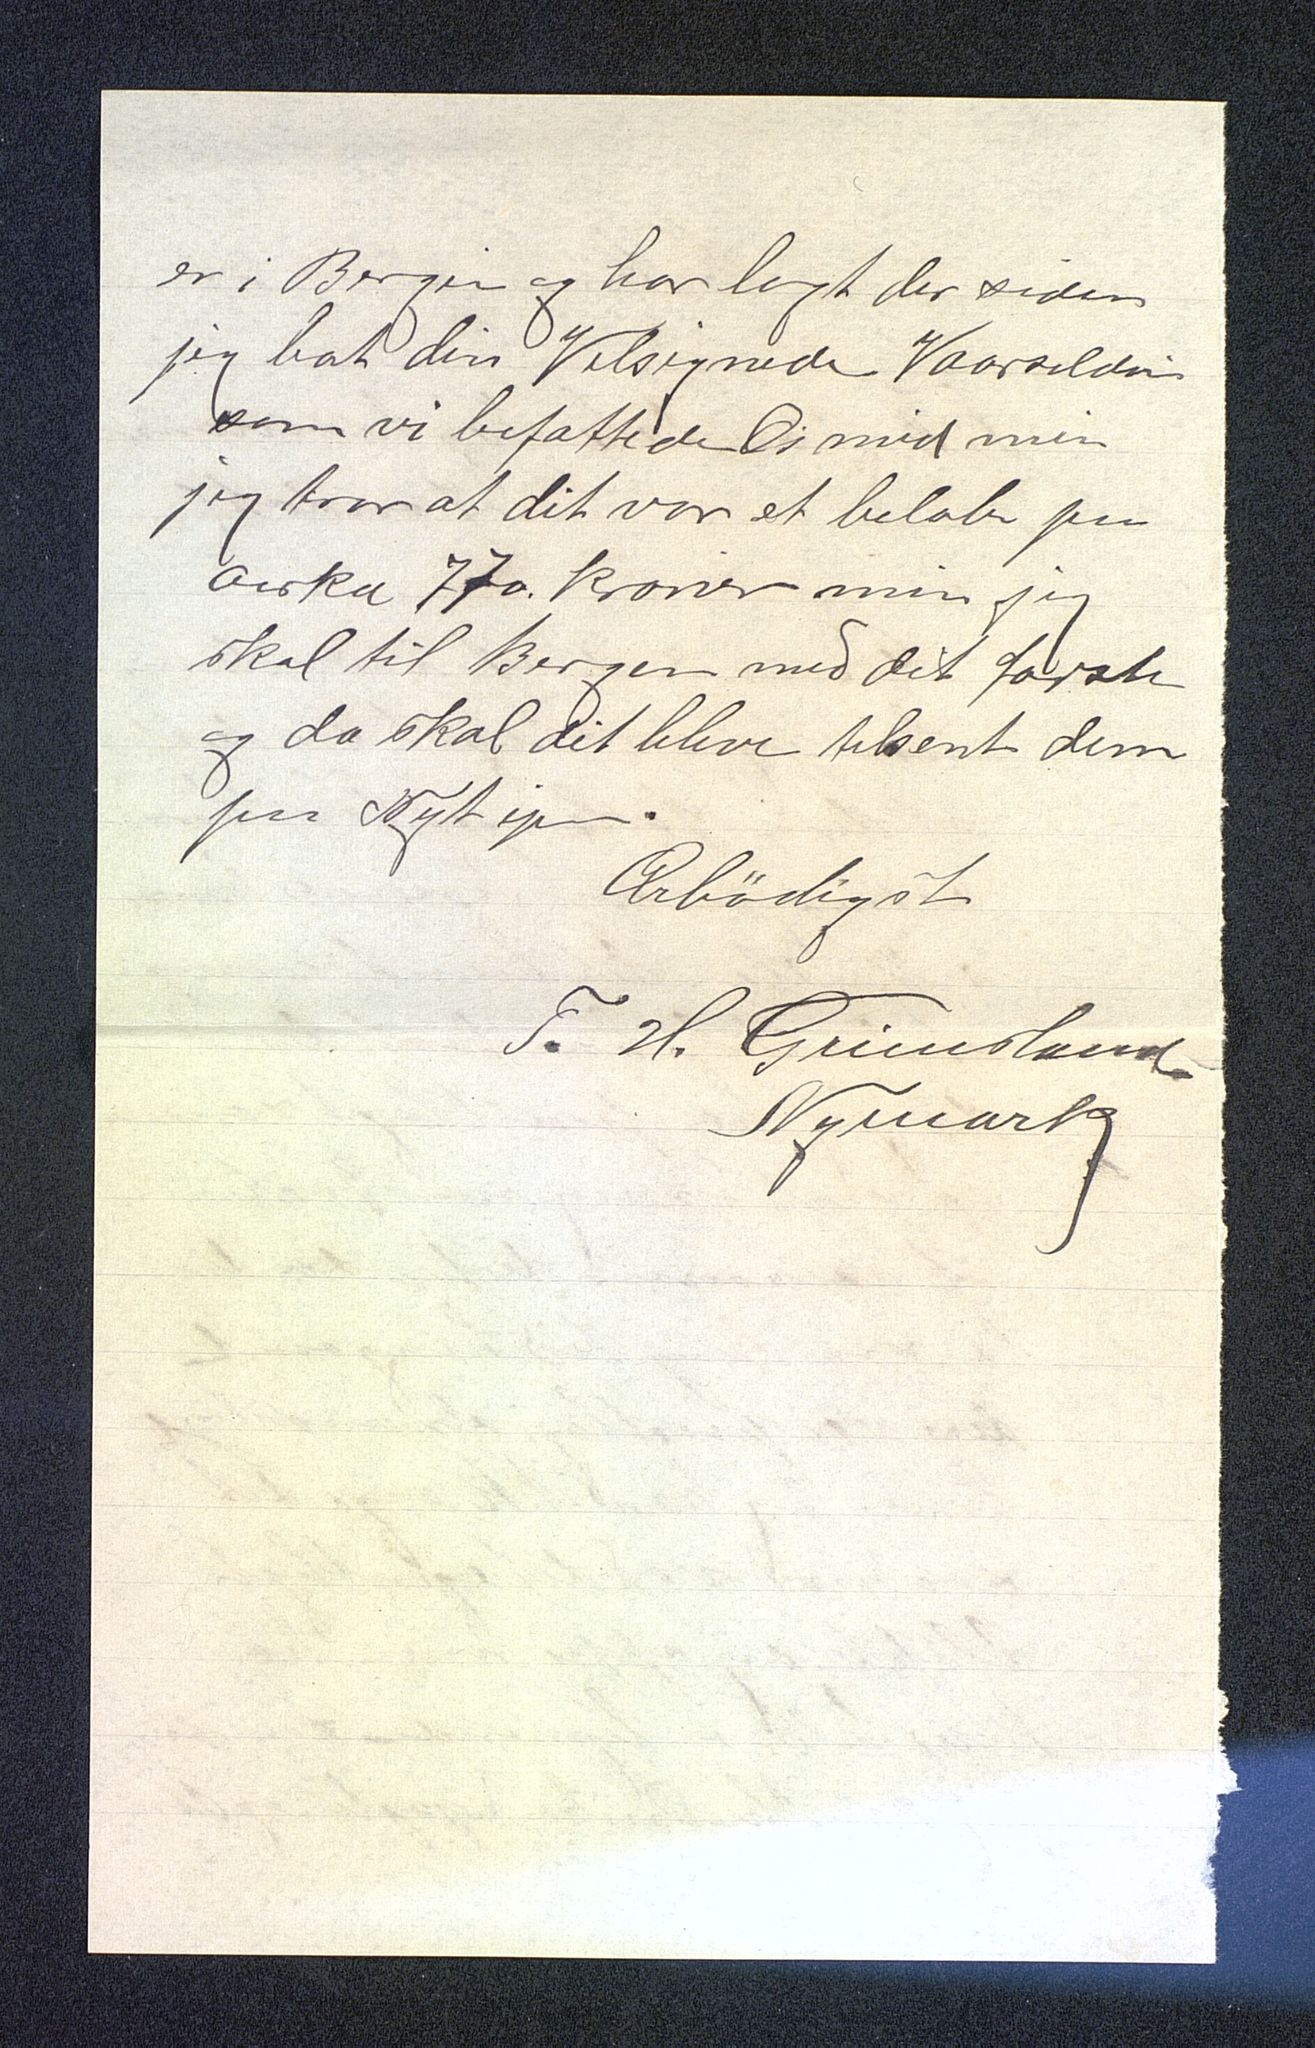 er i Bergen og har lagt der siden
jeg bat den Velsignede Vaarsilden
som vi befattede Os med men
jeg tror at det var et beløb paa
cirka 770. kroner men jeg
skal til Bergen med det første
og da skal det blive tilsent dem
paa Nyt ijen.
Ærbödigst
T. H. Grimsland
Nymark